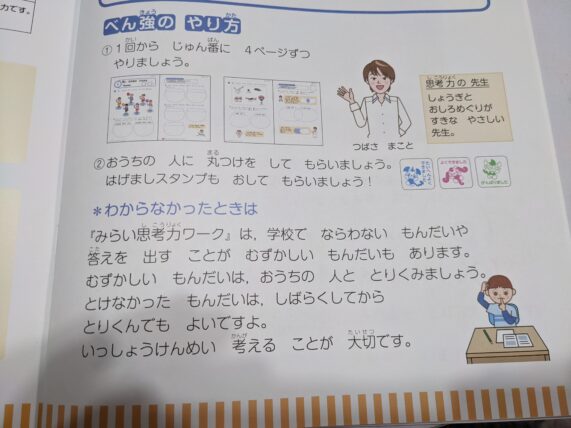 力です。
べん強の やり方
①1回から じゅん番に 4ページずつ
やりましょう。
思考力の 先生
しょうぎと
おしろめぐりが
すきな やさしい
先生。
つばさ まこと
②おうちの 人に 丸つけを して もらいましょう。
はげましスタンプも おして もらいましょう！
*わからなかったときは
『みらい思考力ワーク』は，学校で ならわない もんだいや
答えを 出す ことが むずかしい もんだいも あります。
むずかしい もんだいは，おうちの 人と とりくみましょう。
とけなかった もんだいは，しばらくしてから
とりくんでも よいですよ。
いっしょうけんめい 考える ことが 大切です。